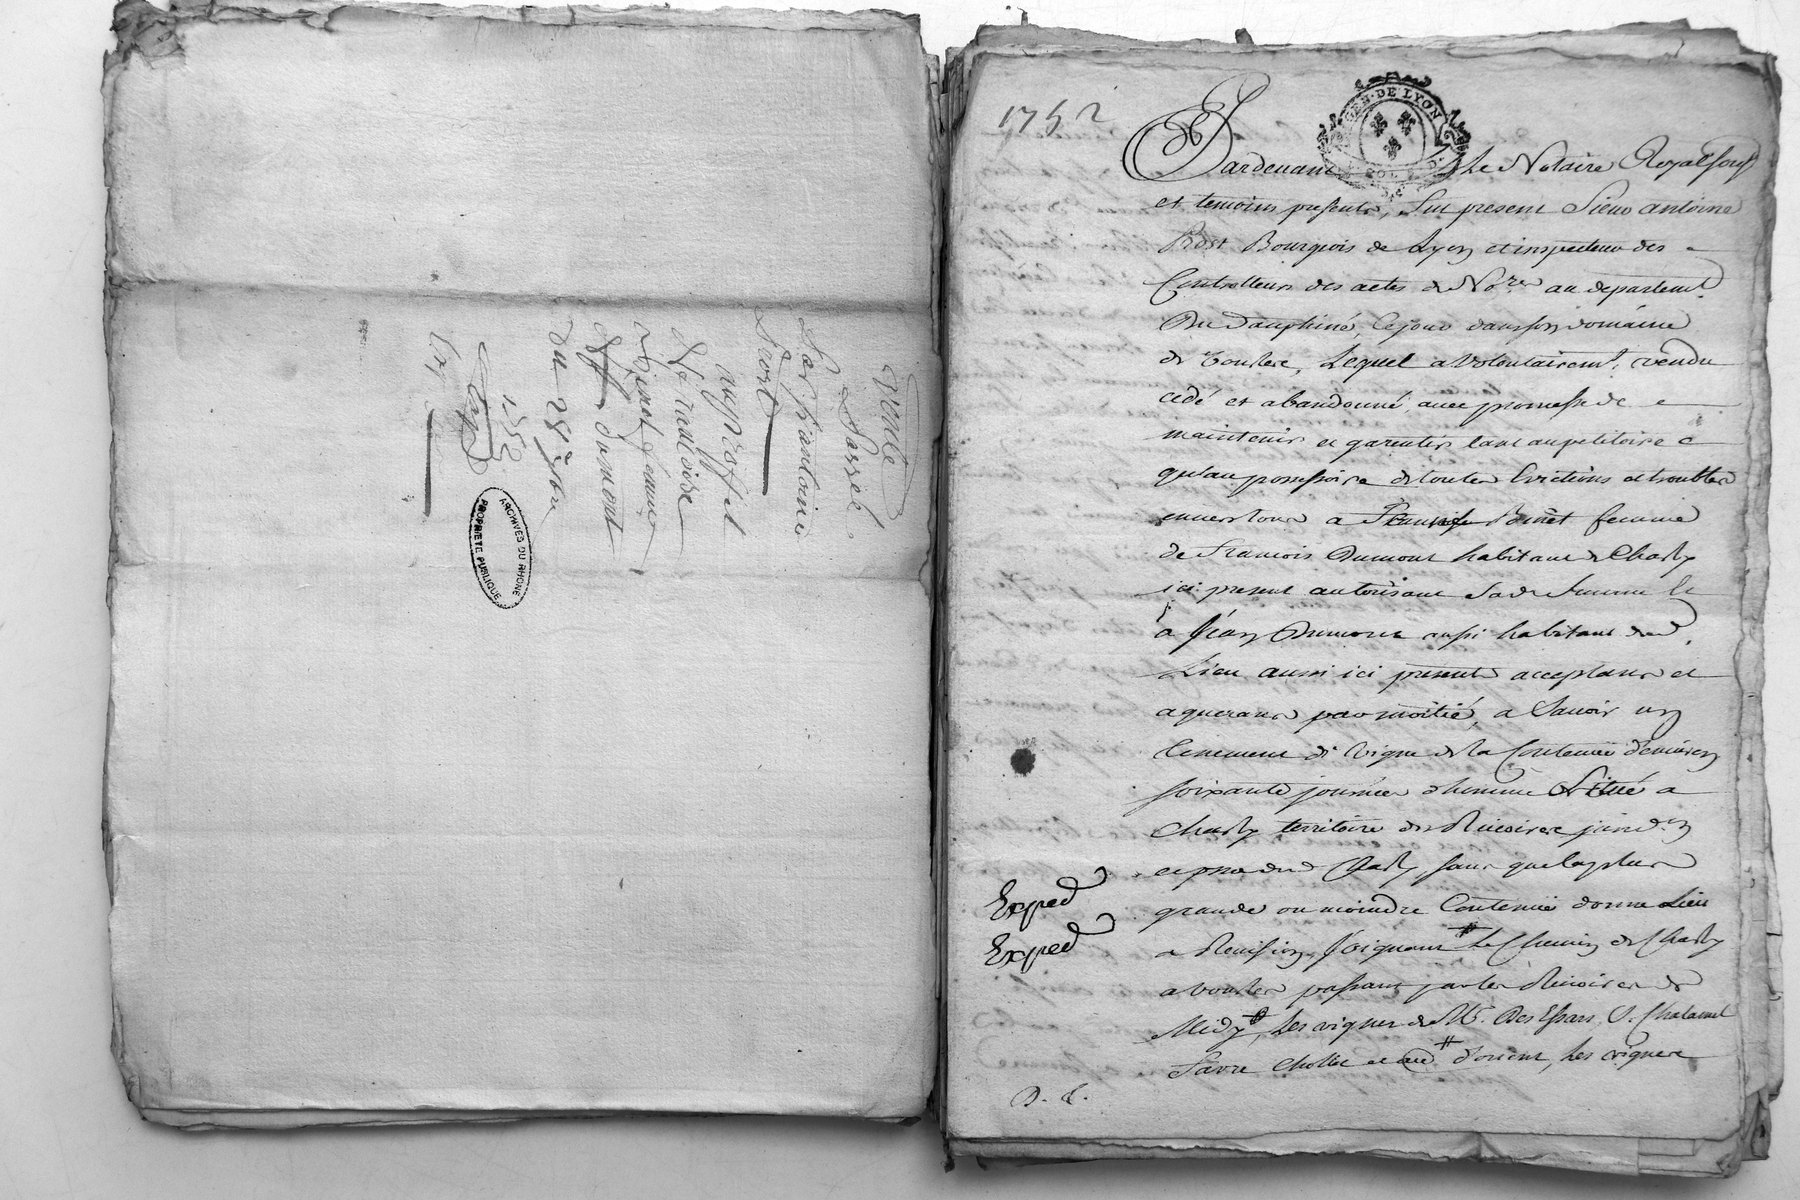 Vente
Passée
Par Sr antoine
Prost
au proffit
de
Benet femme
de fr. Dumont
Du 28 9bre
1752
Exp
ARCHIVES DU RHONE
PROPRIETE PUBLIQUE
1752
GEN. DE LYON
Pardevant Le Notaire Royal sous.
et temoins presents, fut present Sieur antoine
Prost Bourgeois de Lyon et inspecteur des
Controlleurs des actes de Nores au departemt.
Du Dauphiné, ce jour dans son domaine
de Lequel a volontairemt. vendu
cedé et abandonné, avec promesse de
maintenir et garentir tant au petitoire
qu'au possessoire de toutes Evictions et troubles
envers tous a Benet femme
de Francois Dumont habitant de Charly
ici present autorisant Sade. femme &
a Jean Dumont aussi habitant dud.
Lieu aussi ici present acceptans et
aquerans par moitié, a Savoir un
tenement de vigne de la Contenüe d'environ
soixante journées d'homme Situé a
Charly territoire des
dud. Charly, sans que la plus
grande ou moindre Contenüe donne Lieu
a Joignant Le Chemin de Charly
a passant par les de
Midy, Les vignes de Mr. Des Essars,
Favre et au d'orient, Les vignes
Exped
Exped
D. L.